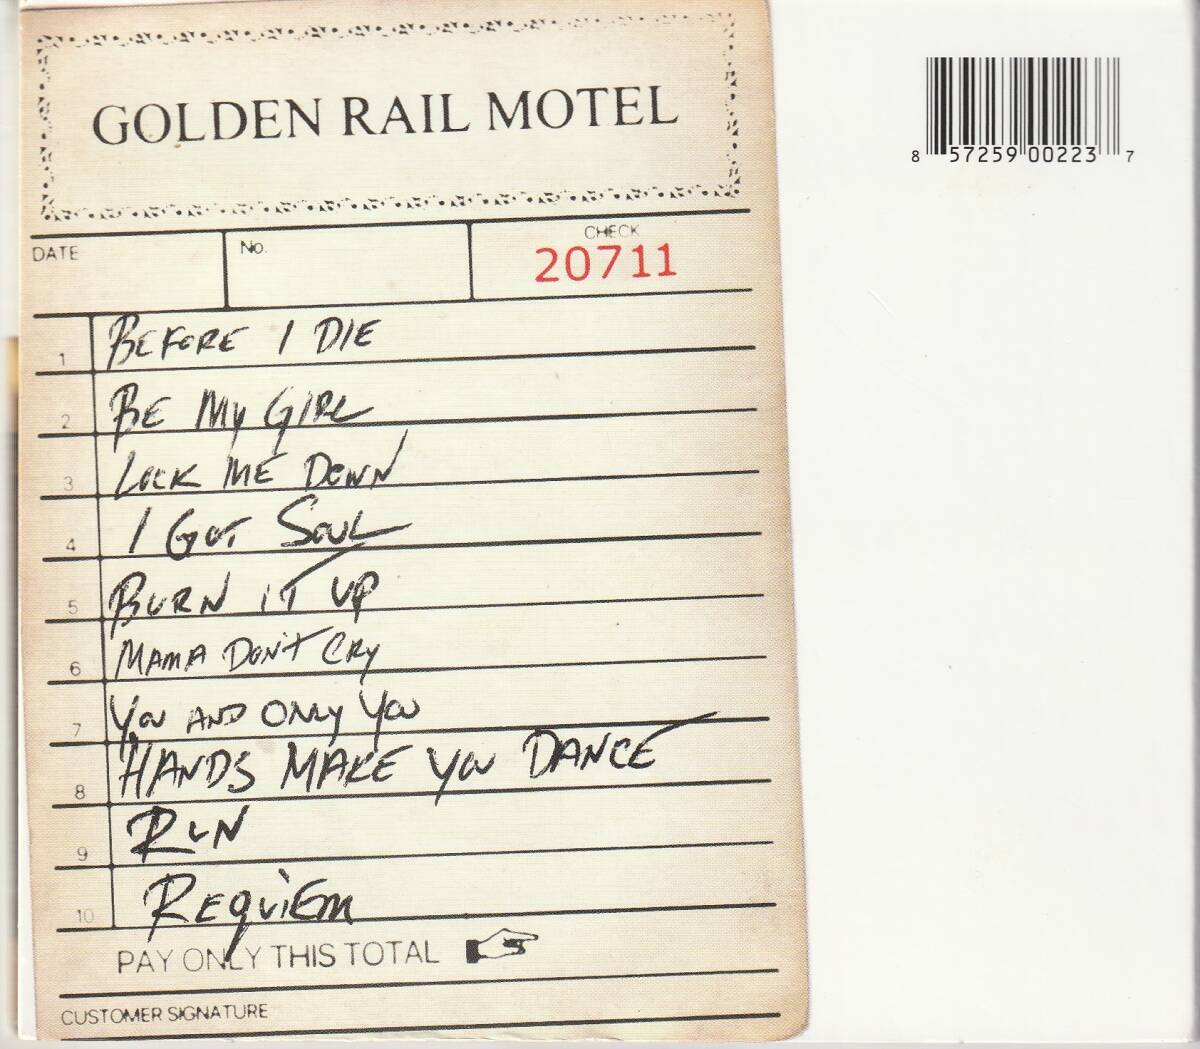 GOLDEN RAIL MOTEL
8 57259 00223 7
DATE
No.
CHECK
20711
1 BEFORE I DIE
2 BE MY GIRL
3 LOCK ME DOWN
4 I GOT SOUL
5 BURN IT UP
6 MAMA DON'T CRY
7 YOU AND ONLY YOU
8 HANDS MAKE YOU DANCE
9 RUN
10 REQUIEM
PAY ONLY THIS TOTAL
CUSTOMER SIGNATURE